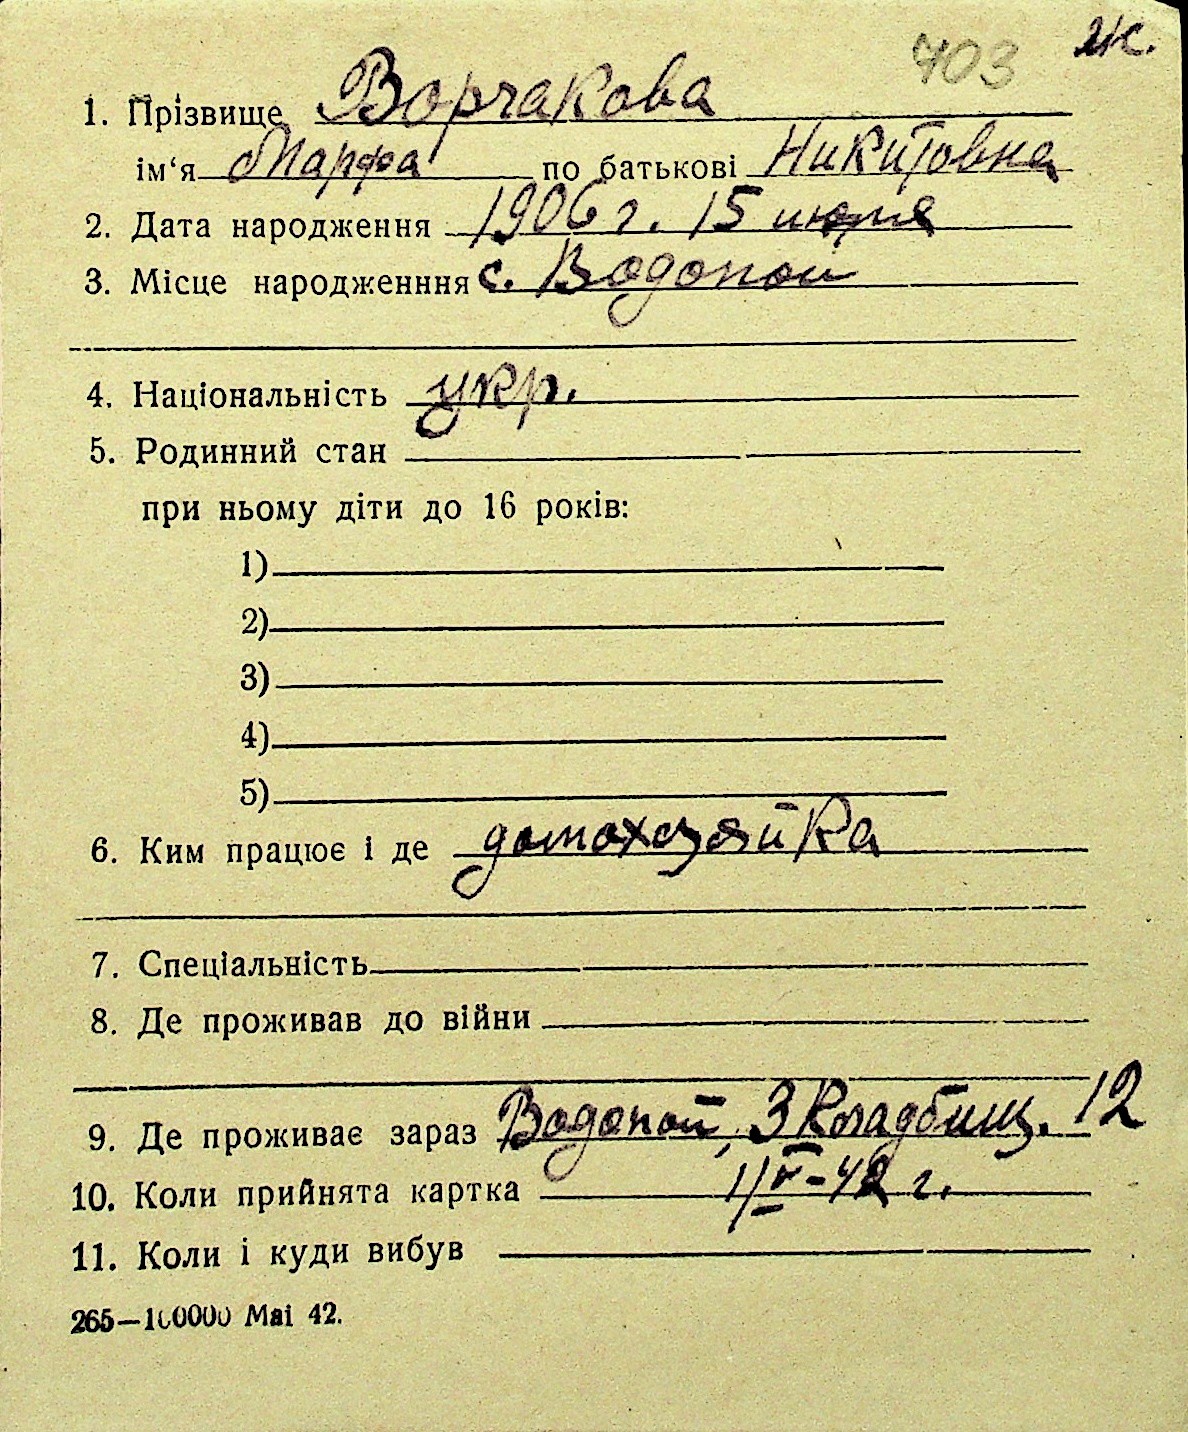 703 Ж.
1. Прізвище Ворчакова
ім‘я Марфа по батькові Никитовна
2. Дата народження 1906 г. 15 июля
3. Місце народженння с. Водопой
4. Національність укр.
5. Родинний стан
при ньому діти до 16 років:
1)
2)
3)
4)
5)
6. Ким працює і де домохозяйка
7. Спеціальність
8. Де проживав до війни
9. Де проживає зараз Водопой, 3 Кладбищ. 12
10. Коли прийнята картка 1/V-42 г.
11. Коли і куди вибув
265—100000 Mai 42.